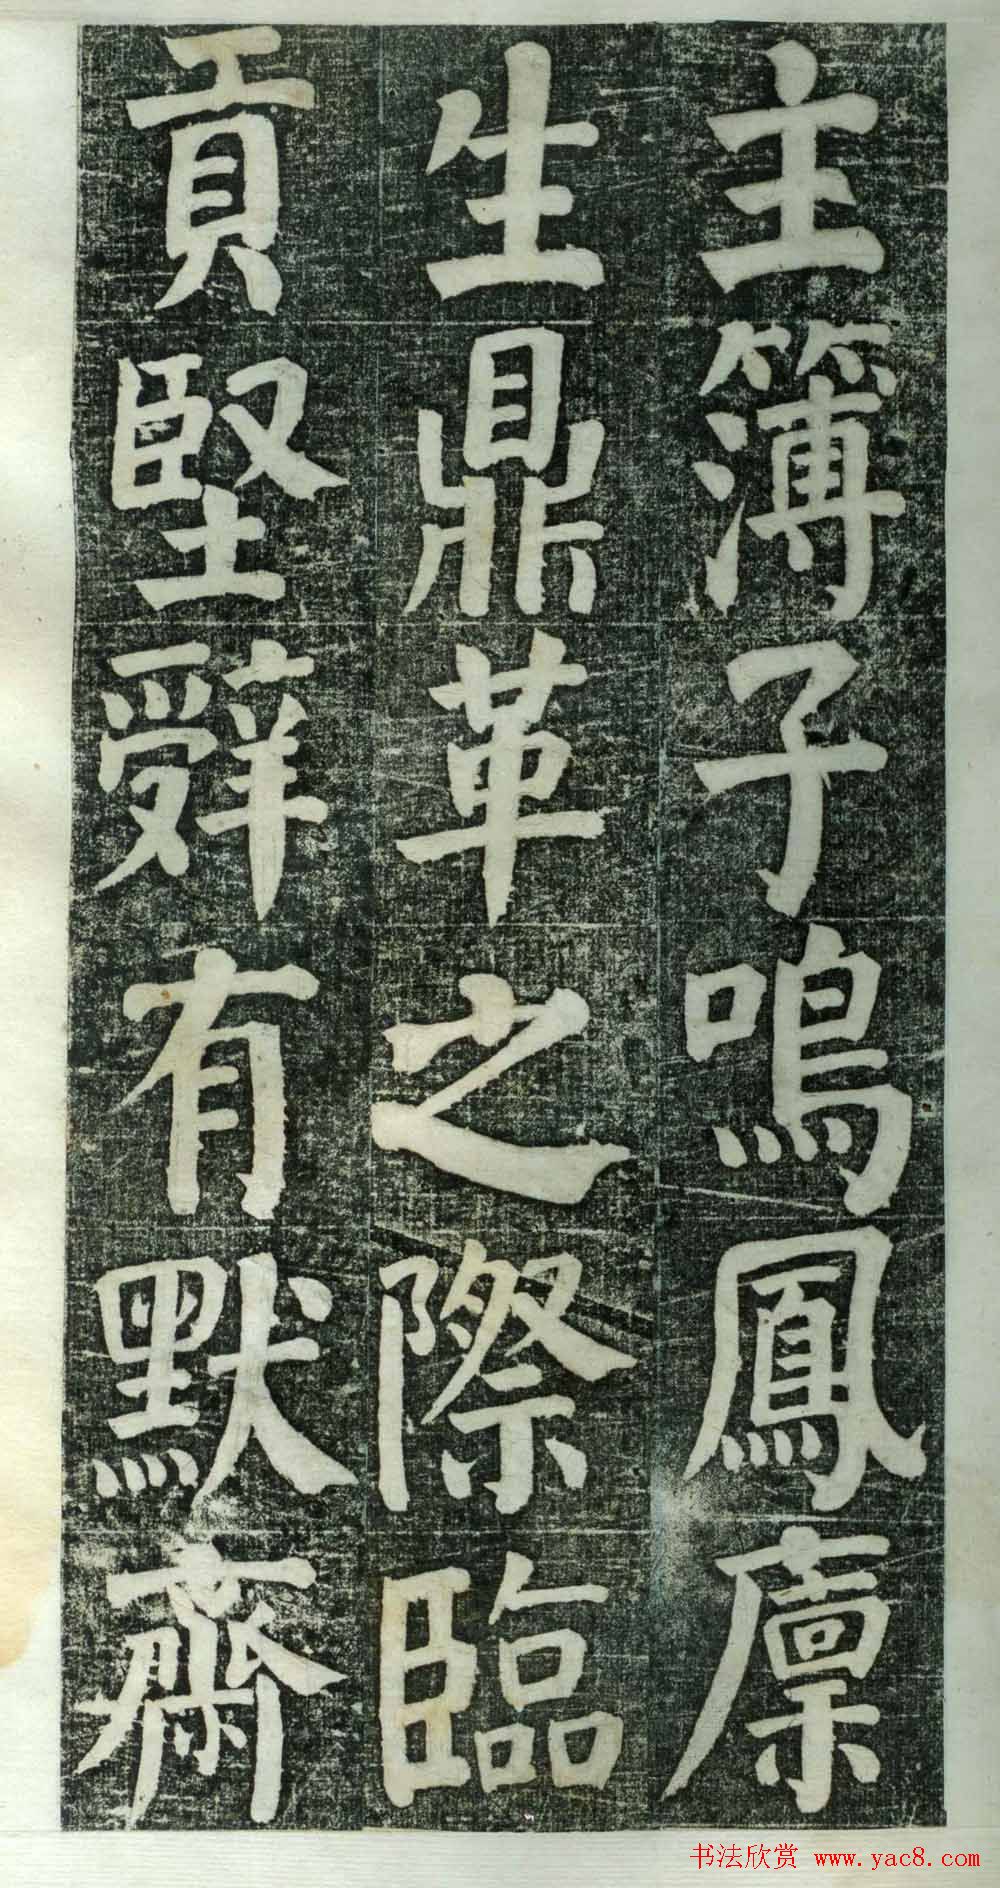 主簿子鳴鳳廩
生鼎革之際臨
貢堅辤有默齋
书法欣赏 www.yac8.com